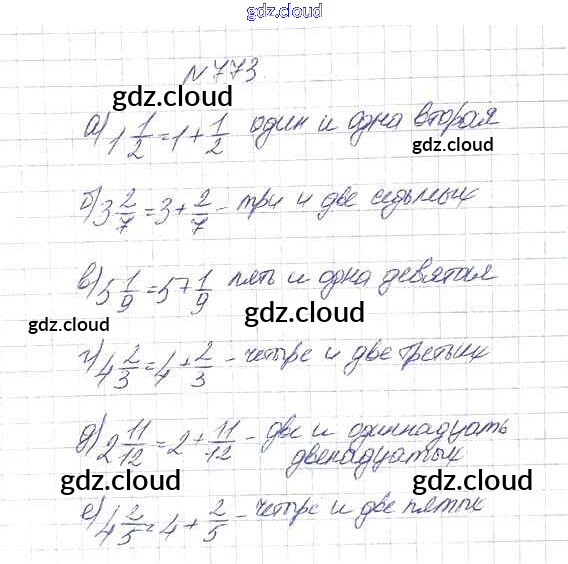 gdz.cloud
N 773.
gdz.cloud
а) 1 1/2 = 1 + 1/2 один и одна вторая
gdz.cloud
б) 3 2/7 = 3 + 2/7 - три и две седьмых
gdz.cloud
в) 5 1/9 = 5 + 1/9 пять и одна девятая
gdz.cloud gdz.cloud
г) 4 2/3 = 4 + 2/3 - четыре и две третьих
gdz.cloud
д) 2 11/12 = 2 + 11/12 - две и одиннадцать
двенадцатых
gdz.cloud gdz.cloud
е) 4 2/5 = 4 + 2/5 - четыре и две пятых
gdz.cloud
gdz.cloud